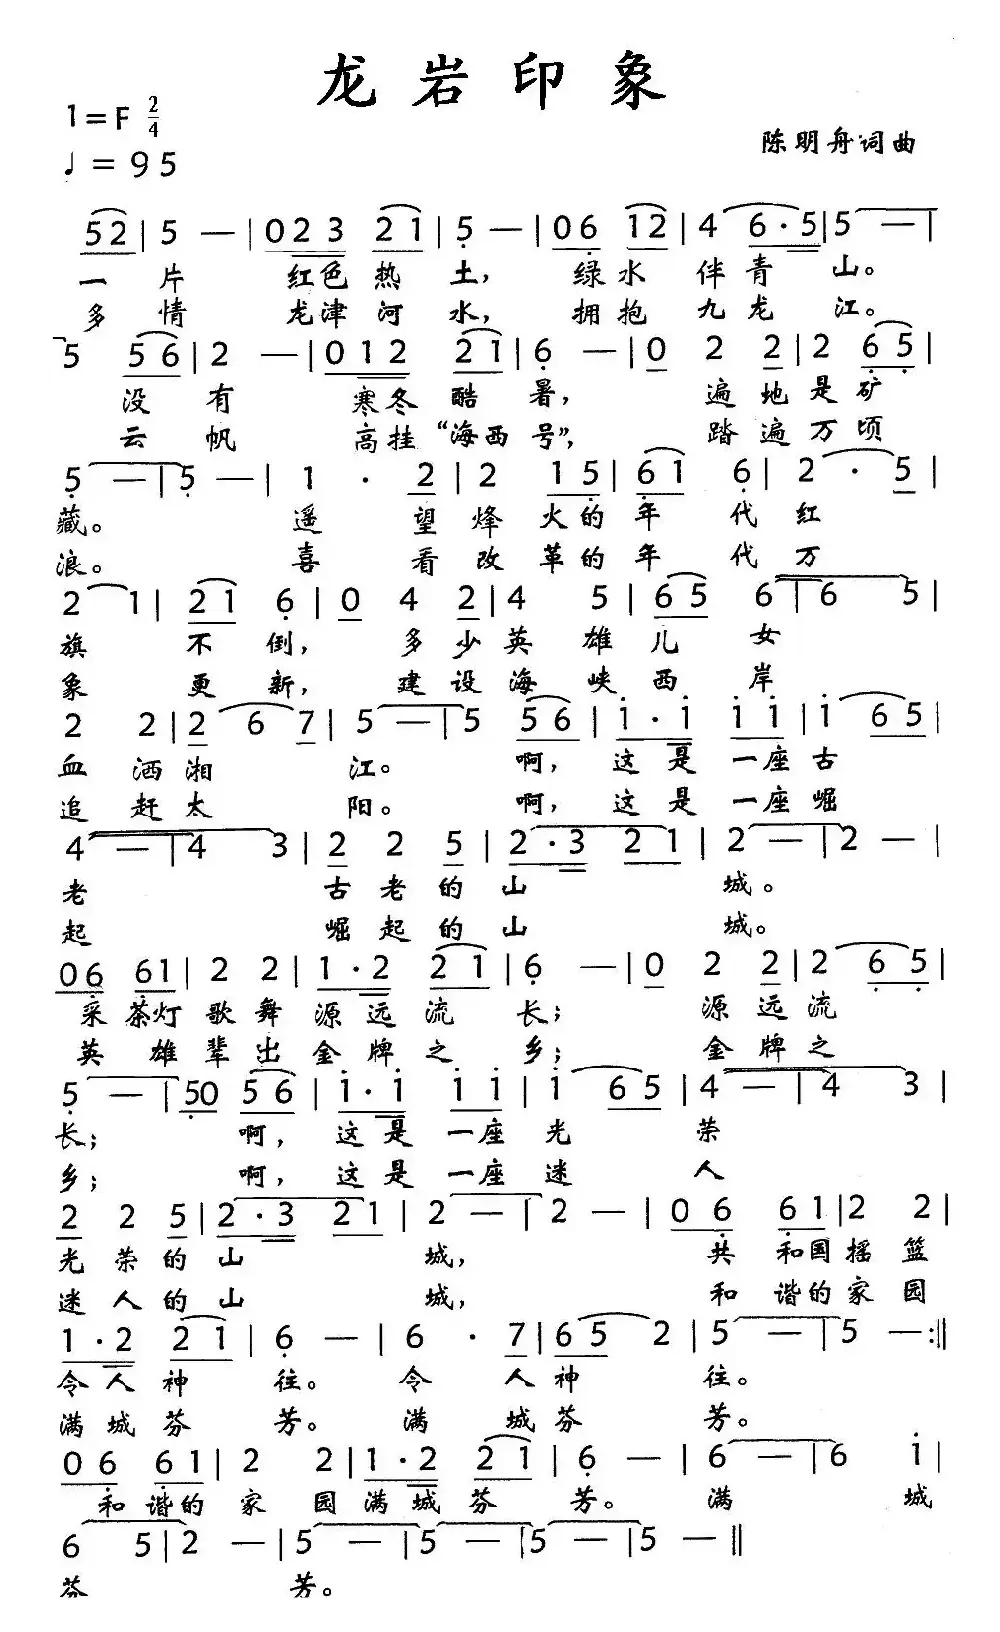 龙岩印象
1=F 2/4
♩=95
陈明舟词曲
52 | 5 — | 023 21 | 5 — | 06 12 | 4 6·5 | 5 — |
一片 红色热土, 绿水伴青山。
多情 龙津河水, 拥抱九龙江。
5 56 | 2 — | 012 21 | 6 — | 0 2 2 | 2 65 |
没有 寒冬酷暑, 遍地是矿
云帆 高挂“海西号”, 踏遍万顷
5 — | 5 — | 1 · 2 | 2 15 | 61 6 | 2 · 5 |
藏。 遥望烽火的年代红
浪。 喜看改革的年代万
2 1 | 21 6 | 0 4 2 | 4 5 | 65 6 | 6 5 |
旗 不倒, 多少英雄儿女
象 更新, 建设海峡西岸
2 2 | 2 6 7 | 5 — | 5 56 | i·i ii | i 65 |
血洒湘江。 啊, 这是一座古
追赶太阳。 啊, 这是一座崛
4 — | 4 3 | 2 2 5 | 2·3 21 | 2 — | 2 — |
老 古老的山城。
起 崛起的山城。
06 61 | 2 2 | 1·2 21 | 6 — | 0 2 2 | 2 65 |
采茶灯歌舞源远流长; 源远流
英雄辈出金牌之乡; 金牌之
5 — | 50 56 | i·i ii | i 65 | 4 — | 4 3 |
长; 啊, 这是一座光荣
乡; 啊, 这是一座迷人
2 2 5 | 2·3 21 | 2 — | 2 — | 06 61 | 2 2 |
光荣的山城, 共和国摇篮
迷人的山城, 和谐的家园
1·2 21 | 6 — | 6 · 7 | 65 2 | 5 — | 5 — :‖
令人神往。 令人神往。
满城芬芳。 满城芬芳。
06 61 | 2 2 | 1·2 21 | 6 — | 6 — | 6 i |
和谐的家园满城芬芳。 满城
6 5 | 2 — | 5 — | 5 — | 5 — | 5 — ‖
芬芳。